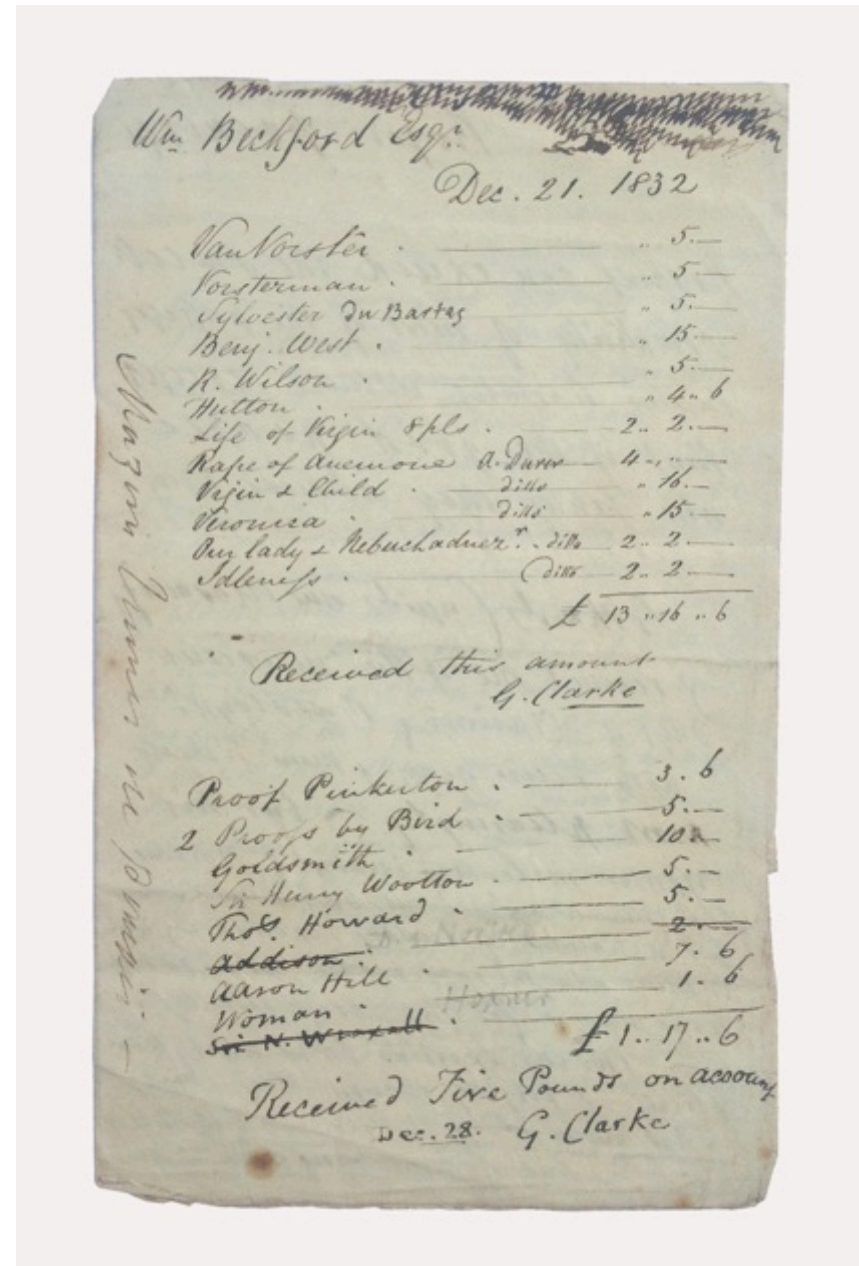 Wm Beckford Esqr
Dec. 21. 1832
Van Vorster . — „ 5.—
Vorsterman . — „ 5.—
Sylvester Du Bartas „ 5.—
Benj. West . — „ 15.—
R. Wilson . — „ 5.—
Hutton . — „ 4„ 6
Life of Virgin 8 pls . — 2„ 2.—
Rape of Anemone A. Durer — 4„ „ —
Virgin & Child . — ditto „ 16.—
Veronica . — ditto „ 15.—
Our lady & Nebuchadnezr. . ditto 2„ 2.—
Idleness . ditto 2„ 2.—
£ 13 „ 16 „ 6
Received this amount
G. Clarke
Proof Pinkerton . — 3. 6
2 Proofs by Bird . — 5.—
Goldsmith . — 10 —
Sir Henry Wootton . — 5.—
Thos. Howard . — 5.—
Addison . — 2.—
Aaron Hill . — 7. 6
Woman . — 1. 6
Sir N. Wraxall .
£ 1„ 17„ 6
Received Five Pounds on account
Dec. 28. G. Clarke